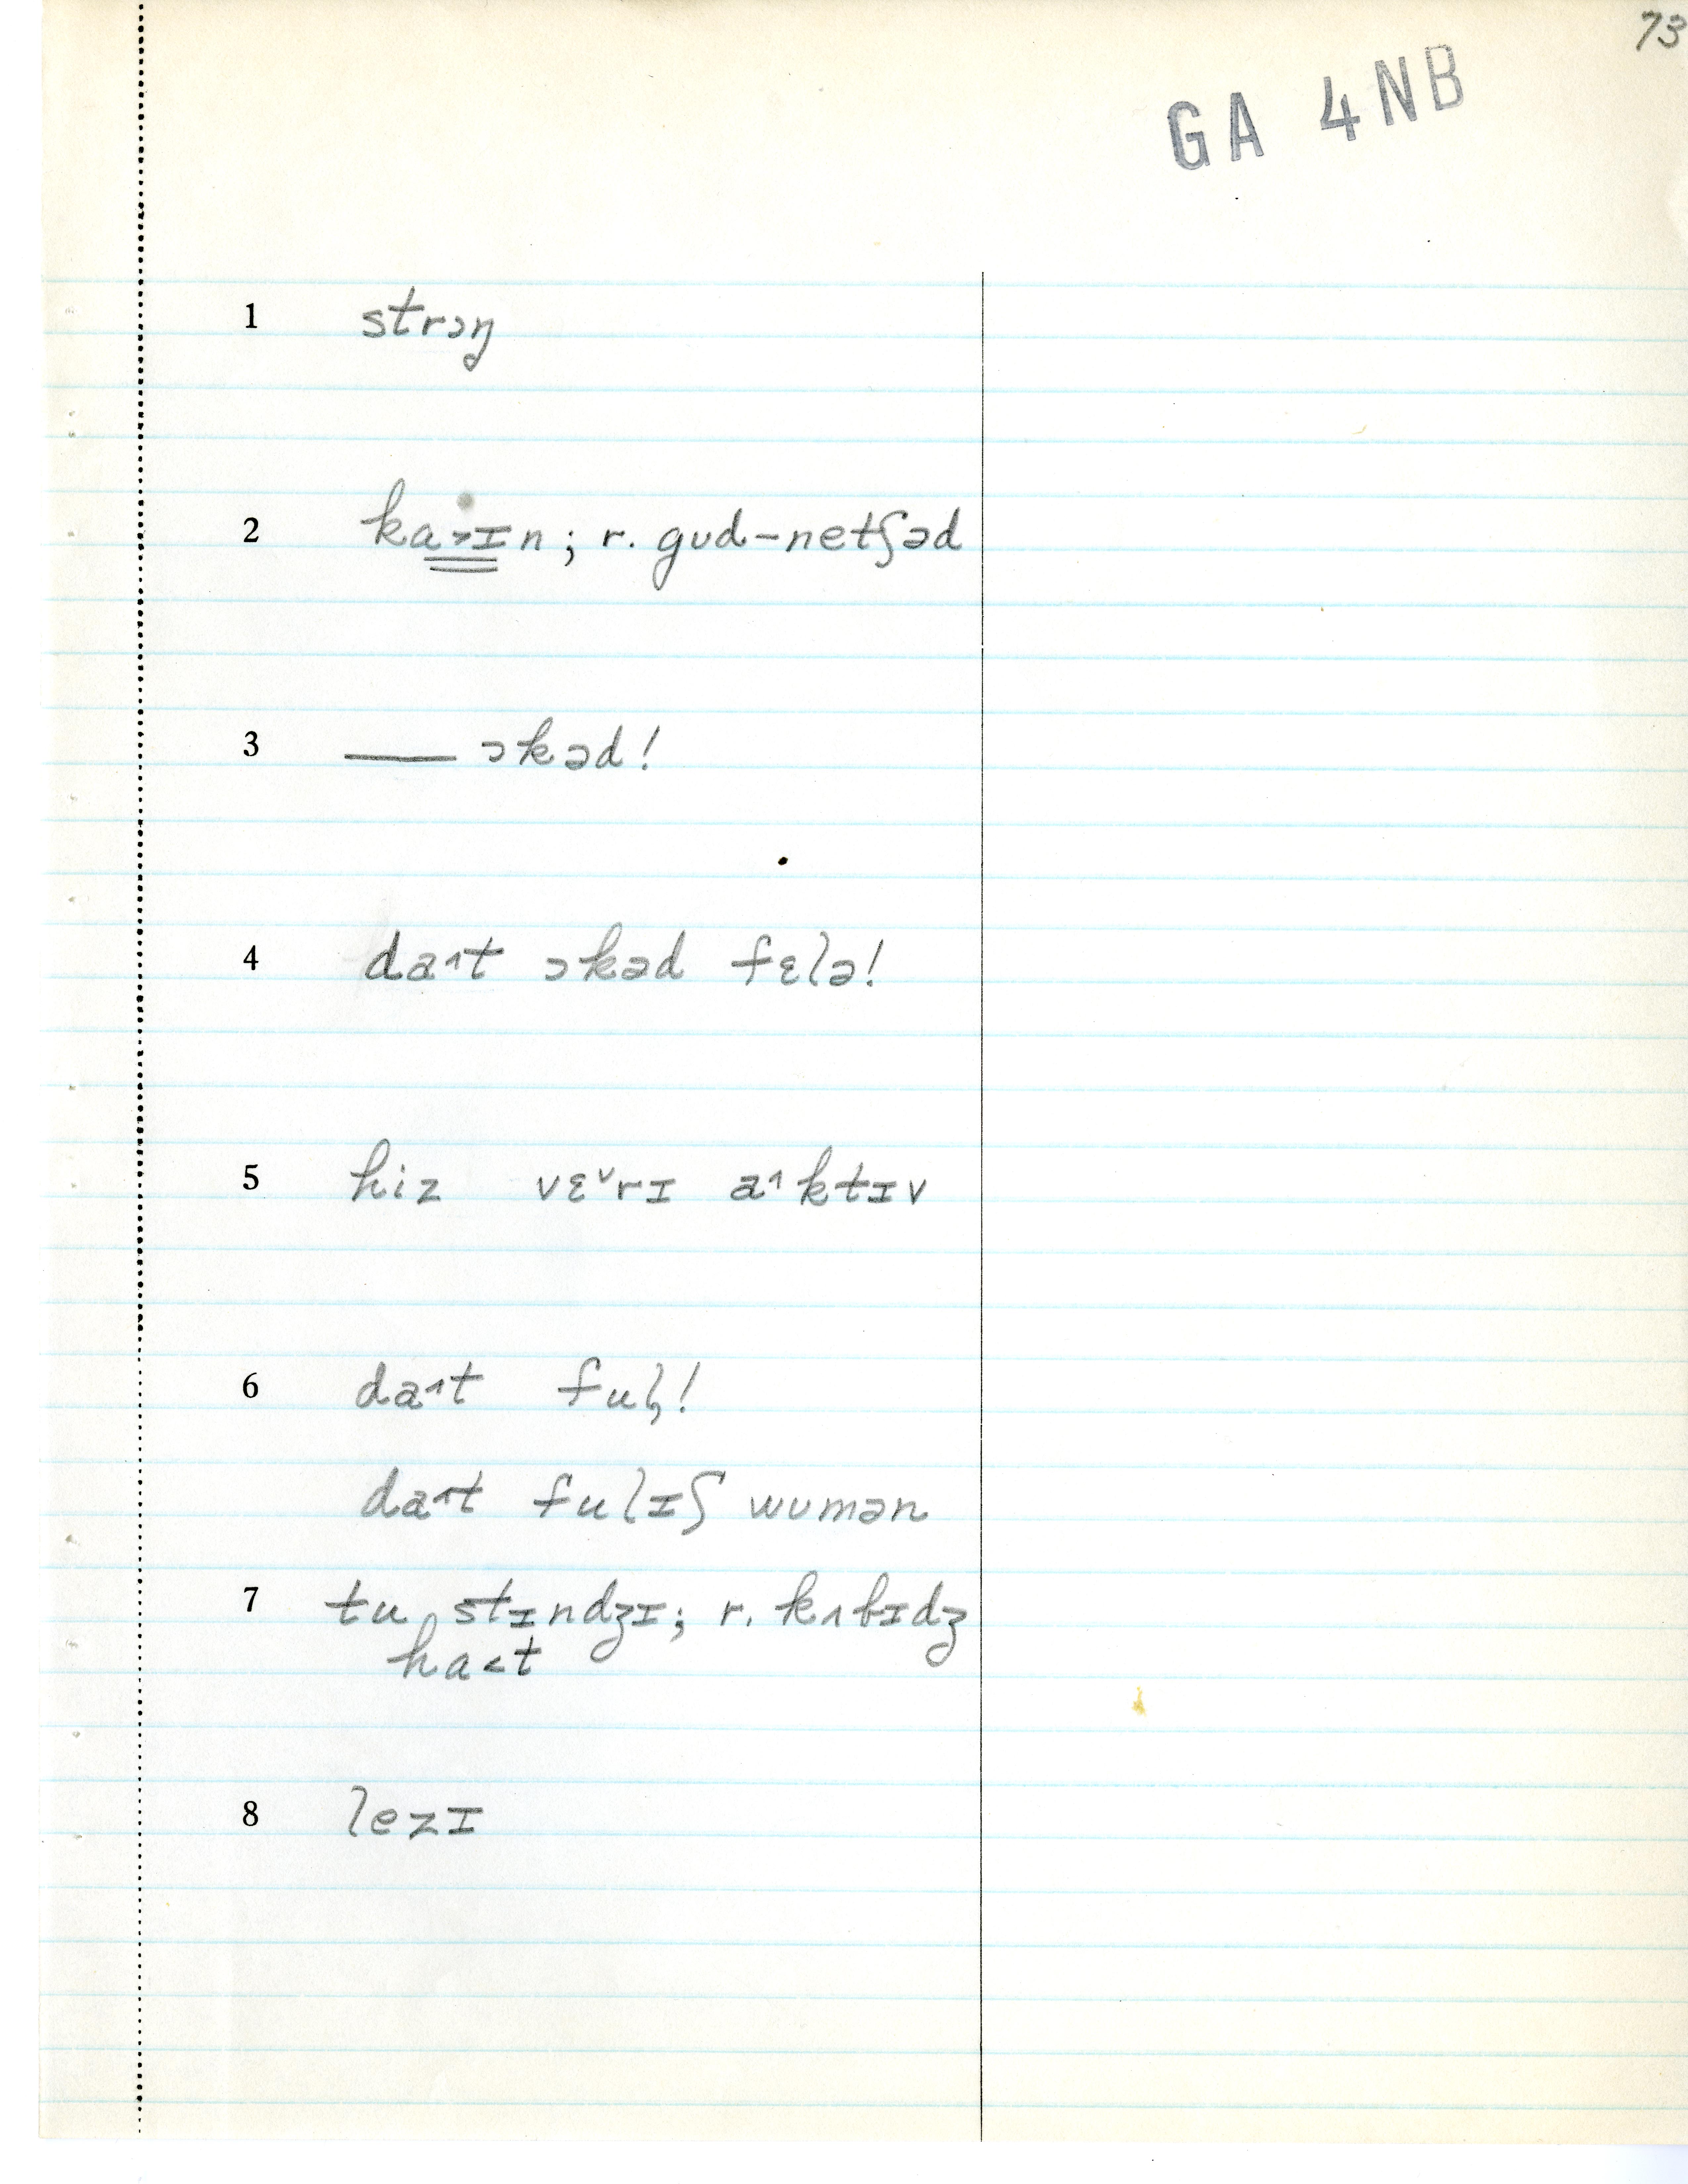 73
GA 4NB
1 strɔŋ
2 ka˃ɪn; r. gʊd-netʃəd
3 — ɔkəd!
4 da˄t ɔkəd fɛlə!
5 hiz vɛ˅rɪ a˄ktɪv
6 da˄t ful̩!
da˄t fulɪʃ wumən
7 tu stɪndʒɪ; r. kʌbɪdʒ
ha˂t
8 lezɪ